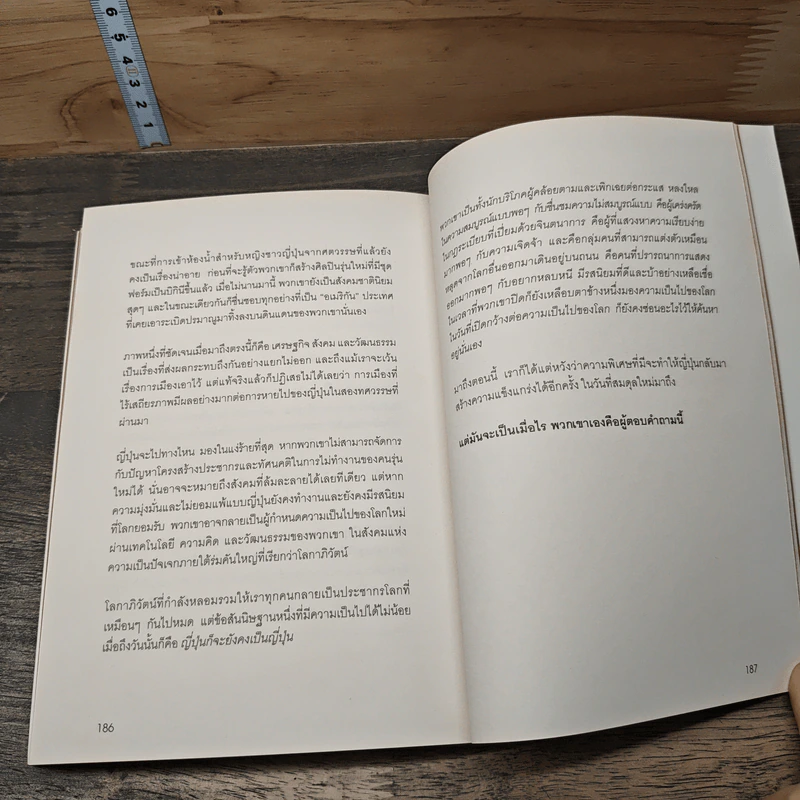 6 5 4 3 2 1
ขณะที่การเข้าห้องน้ำสำหรับหญิงชาวญี่ปุ่นจากศตวรรษที่แล้วยัง
คงเป็นเรื่องน่าอาย ก่อนที่จะรู้ตัวพวกเขาก็สร้างศิลปินรุ่นใหม่ที่มีชุด
ฟอร์มเป็นบิกินีขึ้นแล้ว เมื่อไม่นานมานี้ พวกเขายังเป็นสังคมชาตินิยม
สุดๆ และในขณะเดียวกันก็ชื่นชอบทุกอย่างที่เป็น "อเมริกัน" ประเทศ
ที่เคยเอาระเบิดปรมาณูมาทิ้งลงบนดินแดนของพวกเขานั่นเอง
ภาพหนึ่งที่ชัดเจนเมื่อมาถึงตรงนี้ก็คือ เศรษฐกิจ สังคม และวัฒนธรรม
เป็นเรื่องที่ส่งผลกระทบถึงกันอย่างแยกไม่ออก และถึงแม้เราจะเว้น
เรื่องการเมืองเอาไว้ แต่แท้จริงแล้วก็ปฏิเสธไม่ได้เลยว่า การเมืองที่
ไร้เสถียรภาพมีผลอย่างมากต่อการหายไปของญี่ปุ่นในสองทศวรรษที่
ผ่านมา
ญี่ปุ่นจะไปทางไหน มองในแง่ร้ายที่สุด หากพวกเขาไม่สามารถจัดการ
กับปัญหาโครงสร้างประชากรและทัศนคติในการไม่ทำงานของคนรุ่น
ใหม่ได้ นั่นอาจจะหมายถึงสังคมที่ล้มละลายได้เลยทีเดียว แต่หาก
ความมุ่งมั่นและไม่ยอมแพ้แบบญี่ปุ่นยังคงทำงานและยังคงมีรสนิยม
ที่โลกยอมรับ พวกเขาอาจกลายเป็นผู้กำหนดความเป็นไปของโลกใหม่
ผ่านเทคโนโลยี ความคิด และวัฒนธรรมของพวกเขา ในสังคมแห่ง
ความเป็นปัจเจกภายใต้ร่มคันใหญ่ที่เรียกว่าโลกาภิวัตน์
โลกาภิวัตน์ที่กำลังหลอมรวมให้เราทุกคนกลายเป็นประชากรโลกที่
เหมือนๆ กันไปหมด แต่ข้อสันนิษฐานหนึ่งที่มีความเป็นไปได้ไม่น้อย
เมื่อถึงวันนั้นก็คือ ญี่ปุ่นก็จะยังคงเป็นญี่ปุ่น
186
พวกเขาเป็นทั้งนักบริโภคผู้คล้อยตามและเพิกเฉยต่อกระแส หลงใหล
ในความสมบูรณ์แบบพอๆ กับชื่นชมความไม่สมบูรณ์แบบ คือผู้เคร่งครัด
ในกฎระเบียบที่เปี่ยมด้วยจินตนาการ คือผู้ที่แสวงหาความเรียบง่าย
มากพอๆ กับความเจิดจ้า และคือกลุ่มคนที่สามารถแต่งตัวเหมือน
หลุดจากโลกอื่นออกมาเดินอยู่บนถนน คือคนที่ปรารถนาการแสดง
ออกมากพอๆ กับอยากหลบหนี มีรสนิยมที่ดีและบ้าอย่างเหลือเชื่อ
ในเวลาที่พวกเขาปิดก็ยังเหลือบตาข้างหนึ่งมองความเป็นไปของโลก
ในวันที่เปิดกว้างต่อความเป็นไปของโลก ก็ยังคงซ่อนอะไรไว้ให้ค้นหา
อยู่นั่นเอง
มาถึงตอนนี้ เราก็ได้แต่หวังว่าความพิเศษที่มีจะทำให้ญี่ปุ่นกลับมา
สร้างความแข็งแกร่งได้อีกครั้ง ในวันที่สมดุลใหม่มาถึง
แต่มันจะเป็นเมื่อไร พวกเขาเองคือผู้ตอบคำถามนี้
187